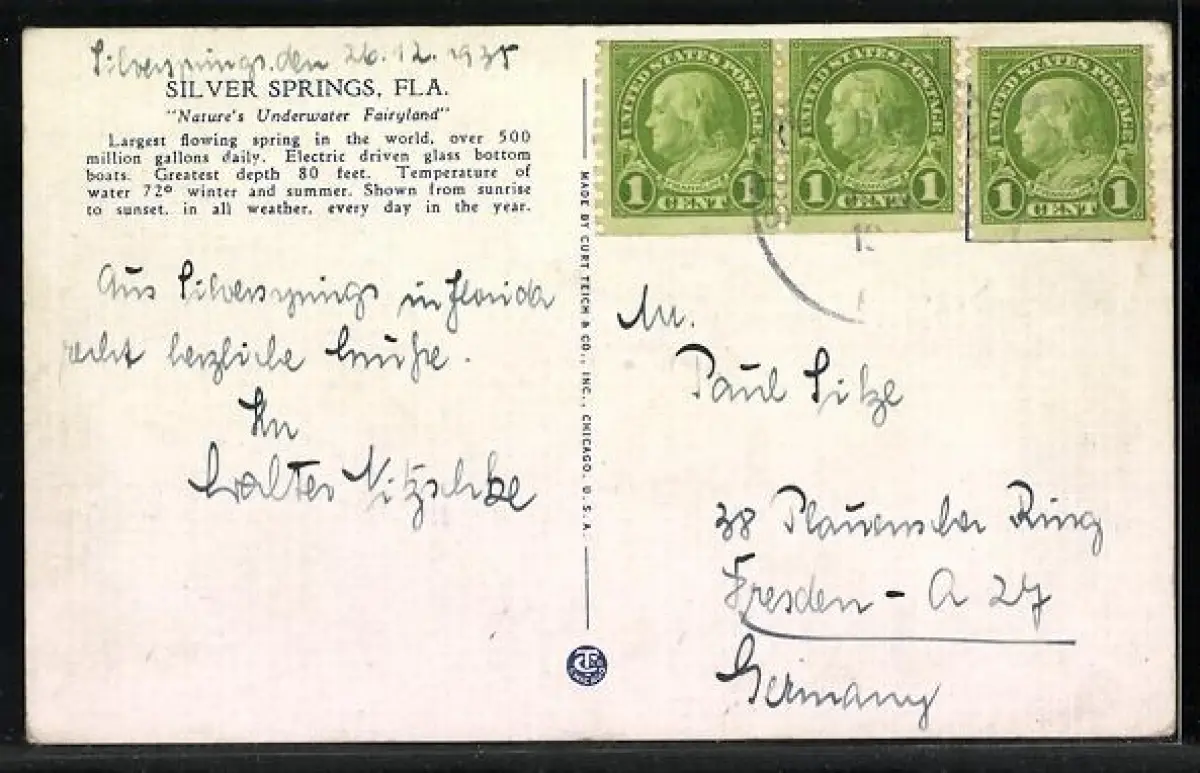 Silversprings, den 26.12.1935
SILVER SPRINGS, FLA.
"Nature's Underwater Fairyland"
Largest flowing spring in the world, over 500
million gallons daily. Electric driven glass bottom
boats. Greatest depth 80 feet. Temperature of
water 72º winter and summer. Shown from sunrise
to sunset, in all weather, every day in the year.
Aus Silversprings in Florida
recht herzliche Grüße.
Ihr
Walter Nitzschke
MADE BY CURT TEICH & CO., INC., CHICAGO, U.S.A.
CT & CO
CHICAGO
UNITED STATES POSTAGE
1 CENT 1
UNITED STATES POSTAGE
1 CENT 1
UNITED STATES POSTAGE
1 CENT 1
Mr.
Paul Sitze
38 Plauenscher Ring
Dresden - A 27
Germany